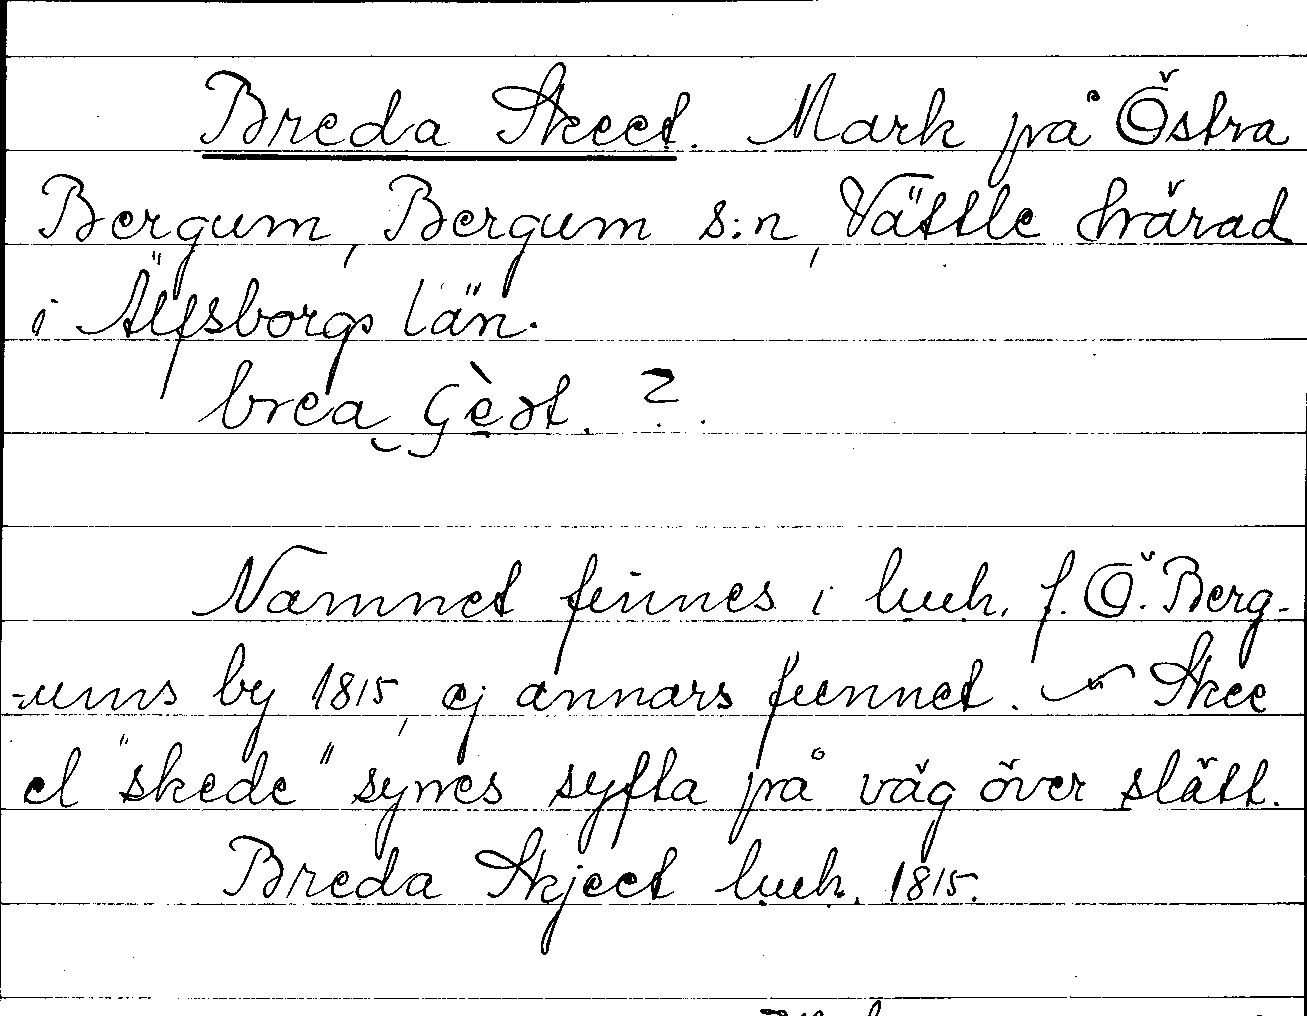 Breda Skeet. Mark på Östra
Bergum, Bergum s:n, Vättle härad
i Älfsborgs län.
brea
Namnet finnes i luuh. f. Ö. Berg-
-ums by 1815, ej annars funnet. Skee
el "skede" synes syfta på väg över slätt.
Breda Skjeet luuh. 1815.